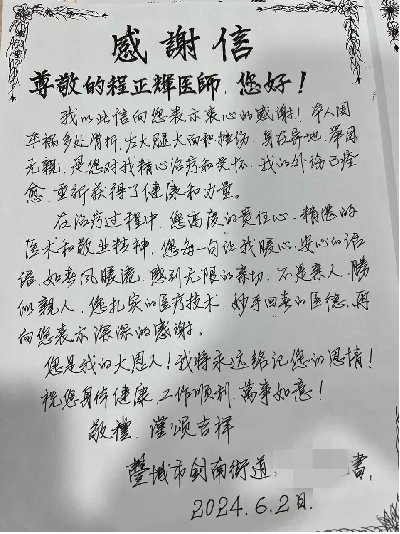 感謝信
尊敬的程正輝医師，您好！
我以此信向您表示衷心的感谢！本人因
车祸多处骨折，左大腿大面积挫伤，身在异地，举目
无親，是您对我精心治疗和关怀，我的外伤已痊
愈，重新获得了健康和力量。
在治疗过程中，您高度的责任心，精湛的
医术和敬业精神，您每一句让我暖心，安心的话
语，如春风暖流，感到无限的亲切，不是亲人，勝
似親人，您扎实的医疗技术 妙手回春的医德，再
向您表示深深的感谢。
您是我的大恩人！我将永远铭记您的恩情！
祝您身体健康，工作顺利，萬事如意！
敬禮，谨颂吉祥
豐城市剑南街道 書，
2024.6.2日.